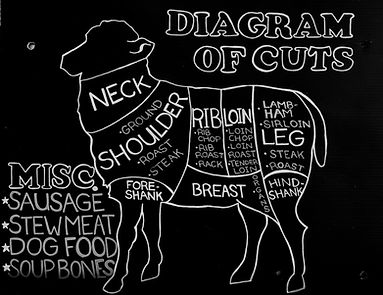 DIAGRAM
OF CUTS
NECK
SHOULDER
•GROUND
•ROAST
•STEAK
RIB
•RIB
CHOP
•RIB
ROAST
•RACK
LOIN
•LOIN
CHOP
•LOIN
ROAST
•TENDER
LOIN
LAMB-
HAM
•SIRLOIN
LEG
•STEAK
•ROAST
FORE-
SHANK
BREAST
ORGANS
HIND-
SHANK
MISC.
*SAUSAGE
*STEW MEAT
*DOG FOOD
*SOUP BONES